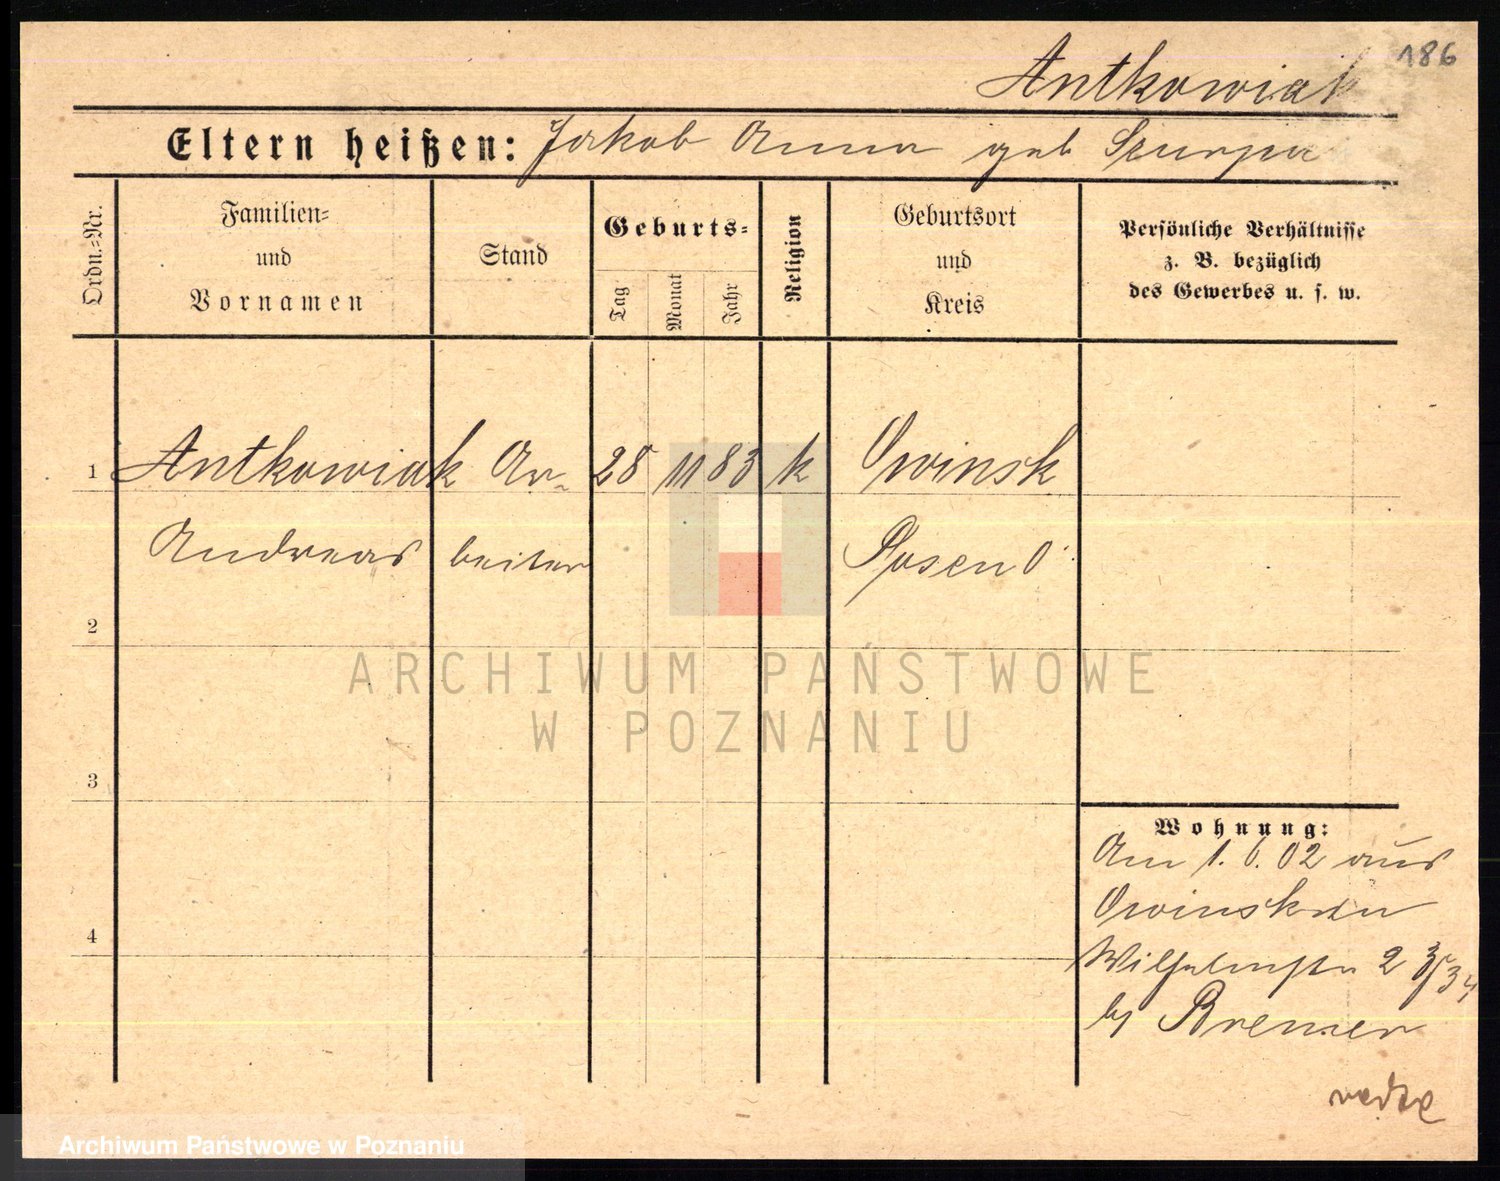 186
Antkowiak
Eltern heißen: Jakob Anna geb
Ordn.=Nr.
Familien=
und
Vornamen
Stand
Geburts=
Tag
Monat
Jahr
Religion
Geburtsort
und
Kreis
Persönliche Verhältnisse
z. B. bezüglich
des Gewerbes u. s. w.
1 Antkowiak Ar- 28 11 83 k Owinsk
Andreas beiter Posen O
2
3
4
ARCHIWUM PAŃSTWOWE
W POZNANIU
Wohnung:
Am 1. 6. 02 aus
Owinsk
Wilhelmstr 2
by Bremer
Archiwum Państwowe w Poznaniu